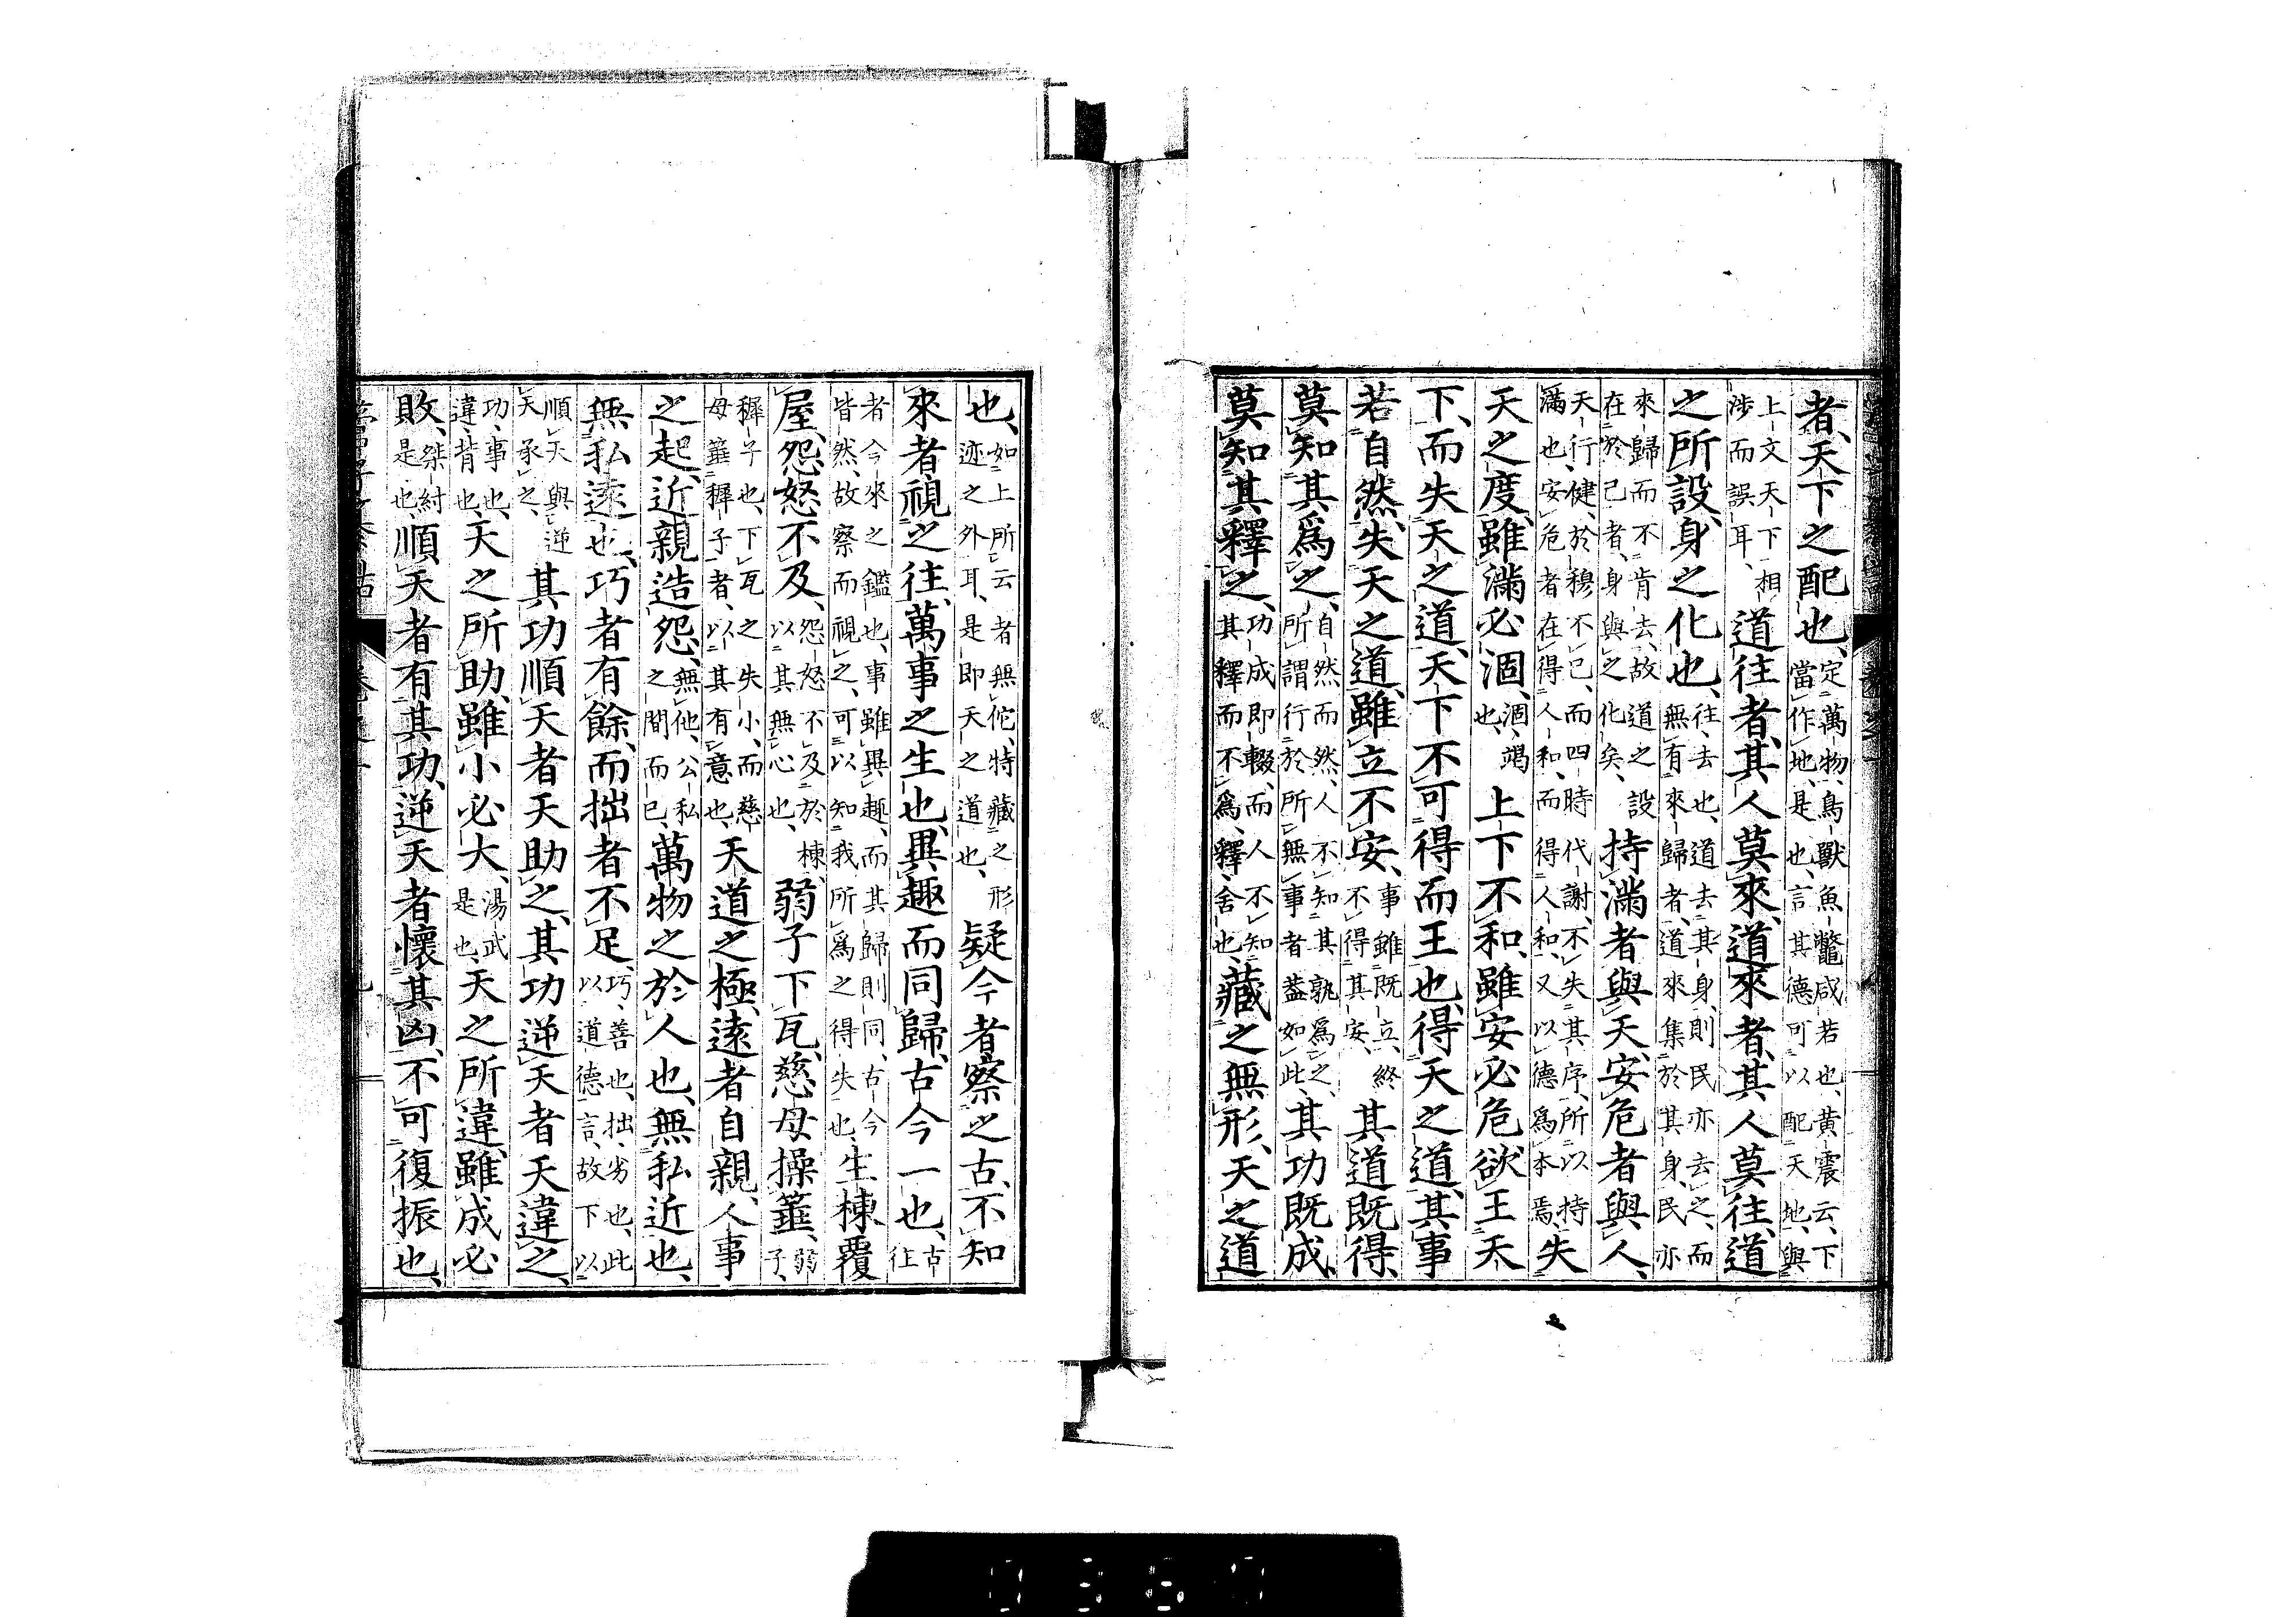 者、天下之配也、定萬物、鳥獸魚鼈咸若也、黃震云、下
當作地、是也、言其德可以配天地、與
上文天下相
涉而誤耳、道往者、其人莫來、道來者、其人莫往、道
之所設、身之化也、往、去也、道去其身、則民亦去之、而
無有來歸者、道來集於其身、民亦
來歸而不肯去、故道之設
在於己者、身與之化矣、持滿者與天、安危者與人、
天行健、於穆不已、而四時代謝、不失其序、所以持
滿也、安危者在得人和、而得人和、又以德爲本焉、失
天之度、雖滿必涸、涸、竭
也、上下不和、雖安必危、欲王天
下、而失天之道、天下不可得而王也、得天之道、其事
若自然、失天之道、雖立不安、事雖既立、終
不得其安、其道既得、
莫知其爲之、自然而然、人不知其孰爲之、
所謂行於所無事者蓋如此、其功既成、
莫知其釋之、功成即輟、而人不知
其釋而不爲、釋、舍也、藏之無形、天之道
也、如上所云者無佗、特藏之形
迹之外耳、是即天之道也、疑今者察之古、不知
來者、視之往、萬事之生也、異趣而同歸、古今一也、古
往
者今來之鑑也、事雖異趣、而其歸則同、古今
皆然、故察而視之、可以知我所爲之得失也、生棟覆
屋、怨怒不及、怨怒不及於棟、
以其無心也、弱子下瓦、慈母操箠、弱
子、
穉子也、下瓦之失小、而慈
母箠穉子者、以其有意也、天道之極、遠者自親、人事
之起、近親造怨、無他、公私
之間而已、萬物之於人也、無私近也、
無私遠也、巧者有餘、而拙者不足、巧、善也、拙、劣也、此
以道德言、故下以
順天與逆
天承之、其功順天者天助之、其功逆天者天違之、
功、事也、
違、背也、天之所助、雖小必大、湯武
是也、天之所違、雖成必
敗、桀紂
是也、順天者有其功、逆天者懷其凶、不可復振也、